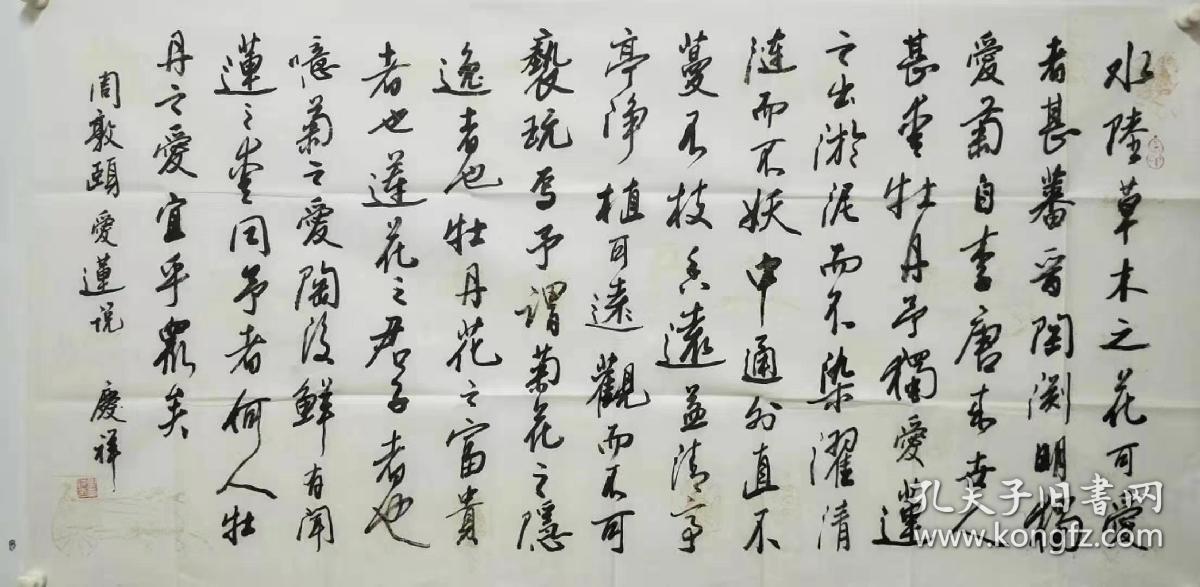 水陸草木之花可愛
者甚蕃晉陶渊明獨
愛菊自李唐来世人
甚愛牡丹予獨愛蓮
之出淤泥而不染濯清
漣而不妖中通外直不
蔓不枝香遠益清亭
亭净植可遠觀而不可
褻玩焉予謂菊花之隱
逸者也牡丹花之富貴
者也蓮花之君子者也
噫菊之愛陶後鮮有聞
蓮之愛同予者何人牡
丹之愛宜乎衆矣
周敦頤愛蓮説
慶祥
孔夫子旧書网
www.kongfz.com